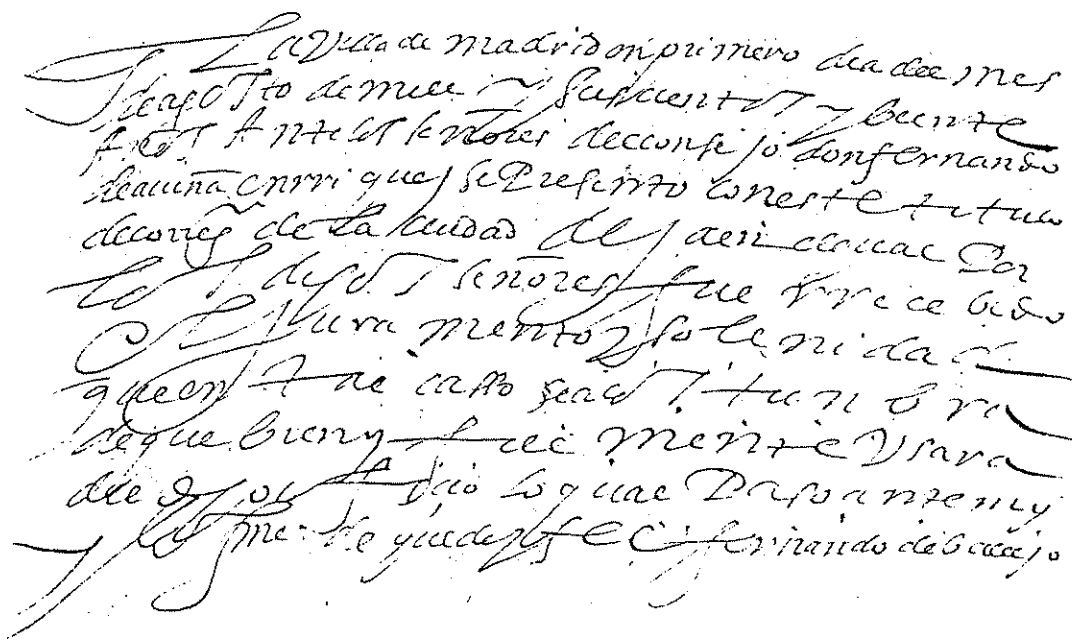 En La Villa de madrid en primero dia del mes
de agosto de mill y seiscientos y beinte
años Ante los señores del consejo don fernando
de acuña enrriquez se Presento con este titulo
de correg de la ciudad de jaen del qual Por
los dhos señores fue rrecebido
el juramento y solenidad
que en tal casso se acostunbra
de que bien y fielmente Usara
del dho offiçio lo qual Paso ante my
de que doy fee fernando de ballejo